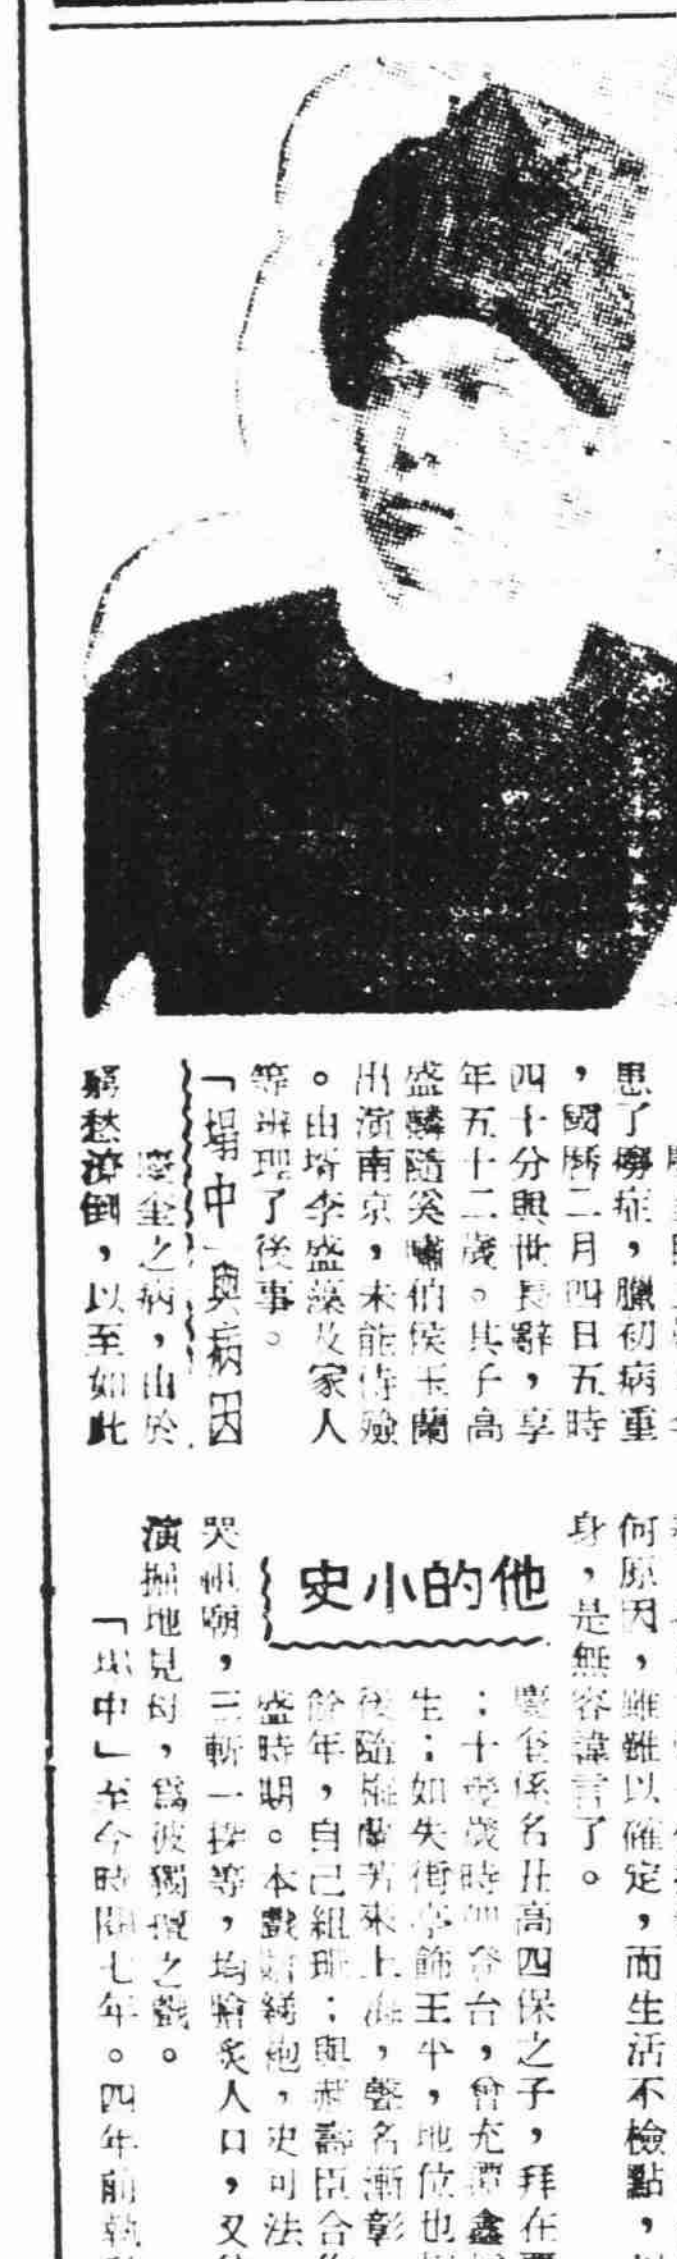 患了癆症，臘初病重
，國曆二月四日五時
四十分與世長辭，享
年五十二歲。其子高
盛麟隨奚嘯伯侯玉蘭
出演南京，未能侍殮
。由壻李盛藻及家人
等辦理了後事。
「塌中」與病因
慶奎之病，由於
窮愁潦倒，以至如此
何原因，雖難以確定，而生活不檢點，
身，是無容諱言了。
他的小史
慶奎係名丑高四保之子，拜在賈
：十幾歲時即登台，曾充譚鑫
生：如失街亭飾王平，地位也
後隨梅蘭芳來上海，聲名漸彰
餘年，自己組班；與郝壽臣合
盛時期。本戲如綈袍，史可法
哭祖廟，三斬一探等，均膾炙人口，又
演掘地見母，爲彼獨擅之戲。
「塌中」至今時閱七年。四年前執